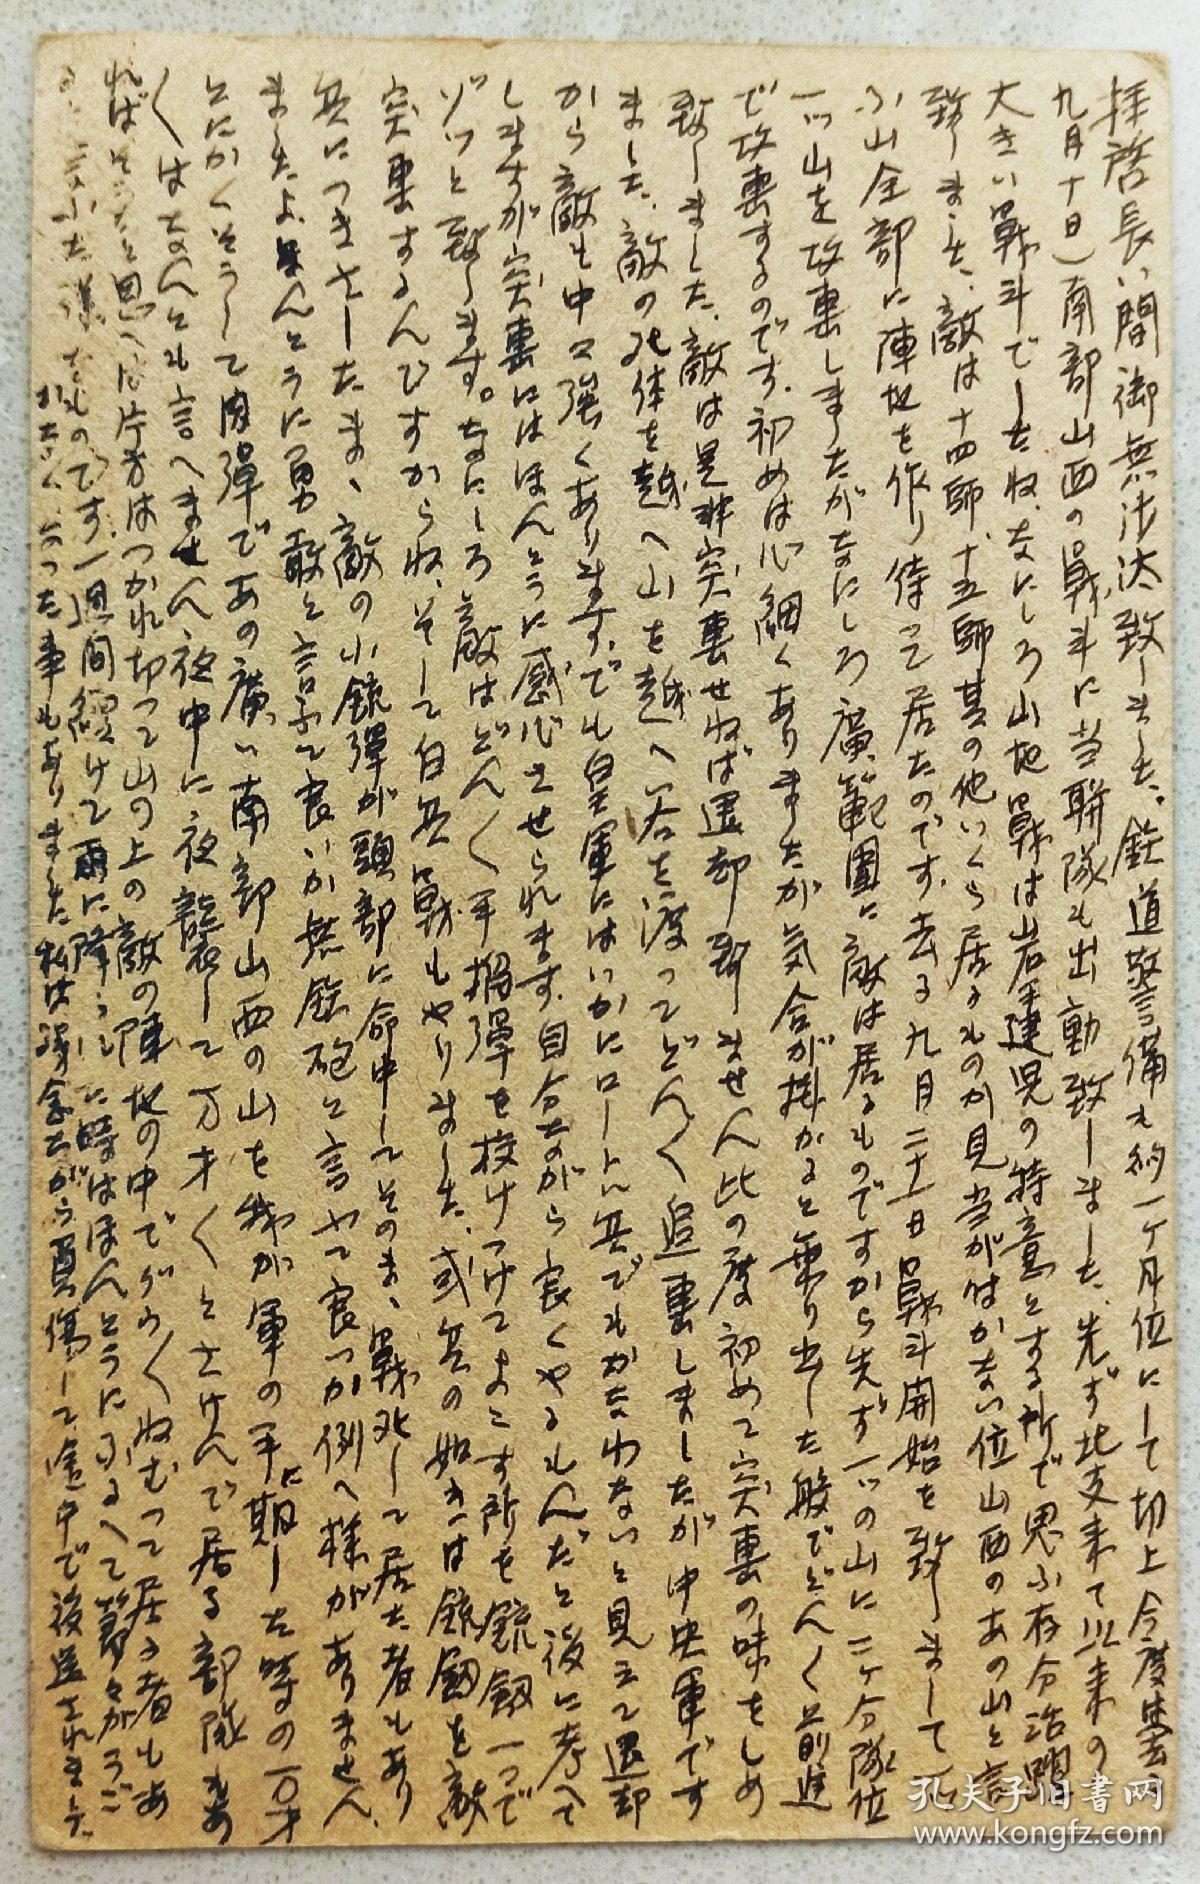 拝啓長い間御無沙汰致しました。鉄道警備も約一ケ月位にして切上今度は去る
九月十日)南部山西の戦斗に当聯隊も出動致しました、先ず北支来て以来の
大きい戦斗でしたね、なにしろ山地戦は岩手建児の特意とする所で思ふ存分活躍
致しました、敵は十四師、十五師其の他いくら居るものか見当がつかない位山西のあの山と言
ふ山全部に陣地を作り待って居たのです、去る九月二十一日戦斗開始を致しまして
一ツ山を攻撃しましたがなにしろ廣範囲に敵は居るものですから先ず一ツの山に二ケ分隊位
で攻撃するのです、初めは心細くありましたが気合が掛かると乗り出した般でどんく前進
致しました、敵は是非突撃せねば退却致しません此の度初めて突撃の味をしめ
ました、敵の死体を越へ山を越へ谷を渡ってどんく追撃しましたが中央軍です
から敵も中々強くあります、でも皇軍にはいかにロートル兵でもかなわないと見えて退却
しますが突撃にはほんとうに感心させられます、自分ながら良くやるもんだと後に考へて
ゾッと致します。なにしろ敵はどんく手榴弾を投けつけてよこす所を銃剣一つで
突撃するんですからね、そして白兵戦もやりました、或兵の如きは銃剣を敵
兵につきさしたまゝ敵の小銃弾が頭部に命中してそのまゝ戦死して居た者もあり
ましたよほんとうに勇敢と言ふて良いか無鉄砲と言ふて良いか例へ様がありません、
とにかくそうして肉弾であの廣い南部山西の山を我が軍の手に期した時の万才
くはなんとも言へません、夜中に夜襲して万才くとさけんで居る部隊もあ
ればそうかと思へば片方はつかれ切って山の上の敵の陣地の中でグウくねむって居る者もあ
ると言ふた様なものです、一週間續けて雨に降られた時はほんとうにふるへて節々がうご
かなくなった事もありました私は残念ながら負傷して途中で後送されました
孔夫子旧书网
www.kongfz.com